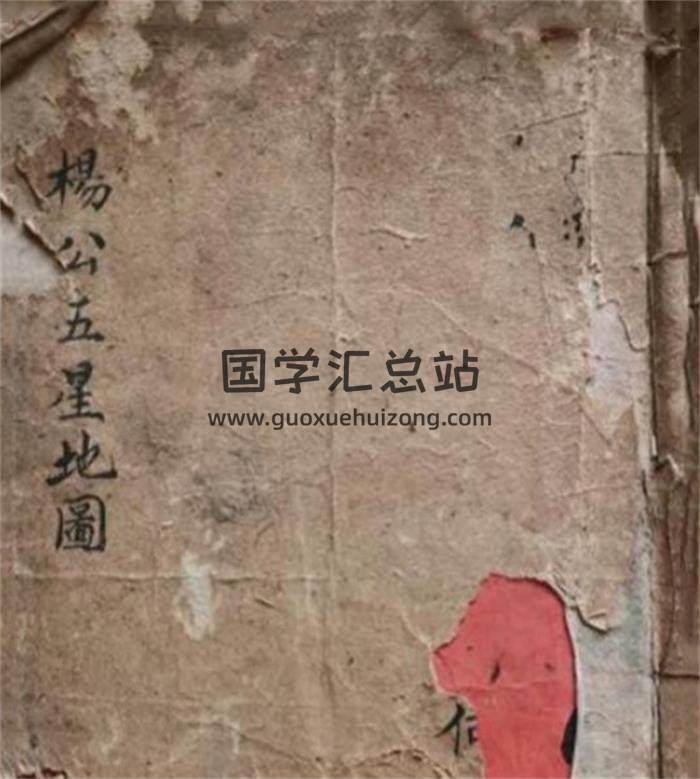 楊公五星地圖
国学汇总站
www.guoxuehuizong.com